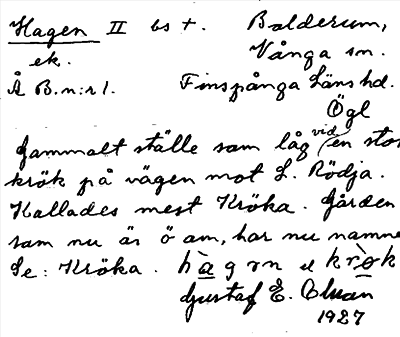 Hagen II bs +. Balderum,
ek. Vånga sn.
Å B.n:r 1. Finspånga Läns hd.
Ögl
Gammalt ställe som låg vid en stor
krök på vägen mot L. Rödja.
Kallades mest Kröka. Gården
som nu är ö am, har nu namne
Se: Kröka. hàgɷn el kròk
Gustaf E.
1927